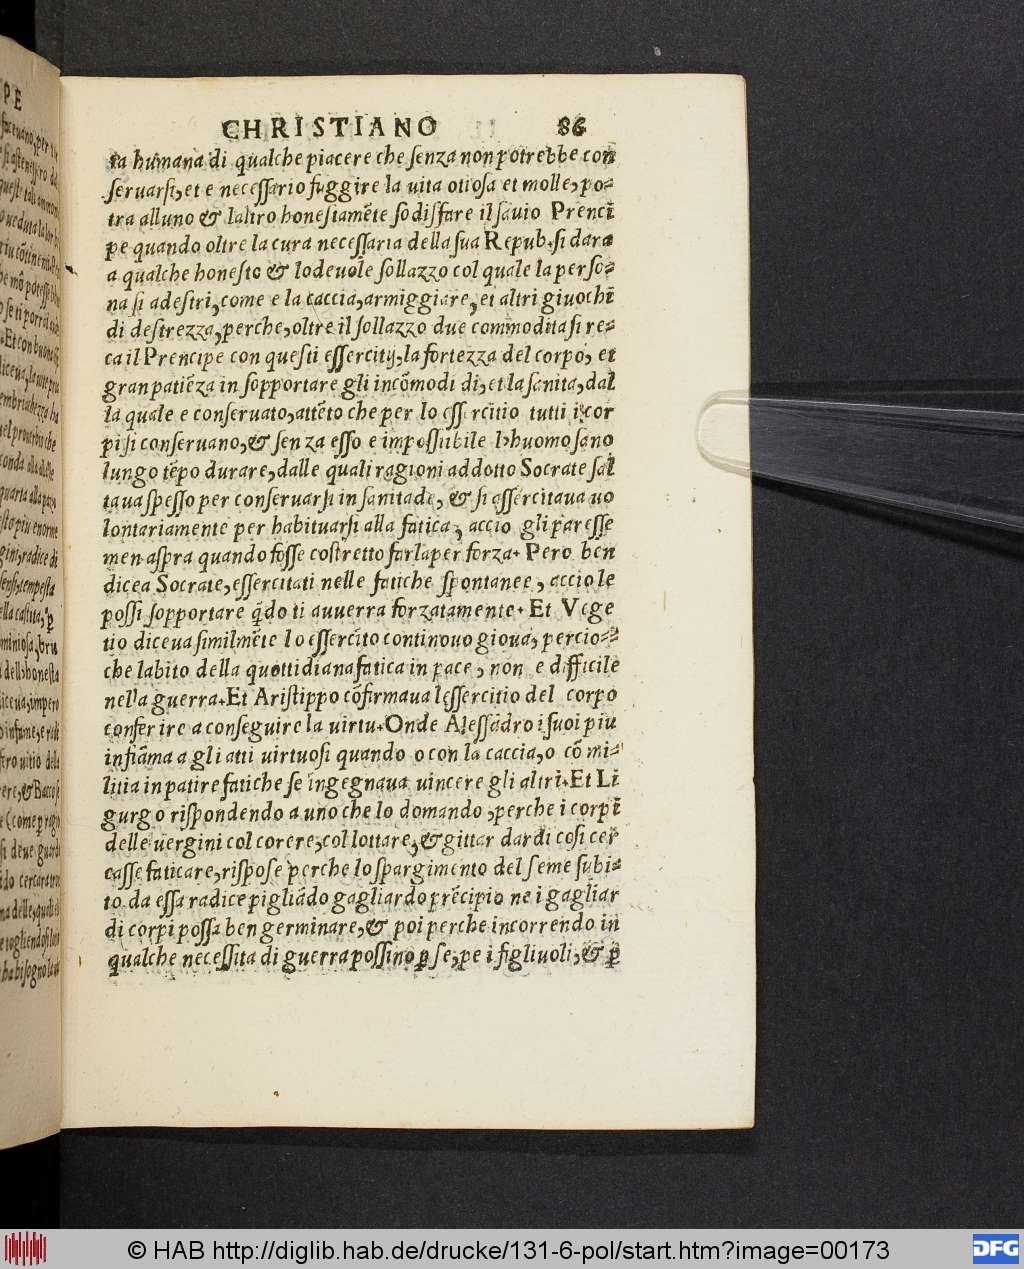 CHRISTIANO 86
ta humana di qualche piacere che ſenza non potrebbe con
ſeruarſi, et e neceſſario fuggire la uita otioſa et molle, po=
tra alluno & laltro honeſtamẽte ſodiſfare il ſauio Prencĩ
pe quando oltre la cura neceſſaria della ſua Repub. ſi dara
a qualche honeſto & lodeuole ſollazzo col quale la perſo=
na ſi adeſtri, come e la caccia, armiggiare, et altri giuochi
di deſtrezza, perche, oltre il ſollazzo due commodita ſi re=
ca il Prencipe con queſti eſſercitij, la fortezza del corpo, et
gran patiẽza in ſopportare gli incõmodi di, et la ſanita, dal
la quale e conſeruato, attẽto che per lo eſſercitio tutti i cor
pi ſi conſeruano, & ſenza eſſo e impoſſibile l'huomo ſano
lungo tẽpo durare, dalle quali ragioni addotto Socrate ſal
taua ſpeſſo per conſeruarſi in ſanitade, & ſi aſſercitaua uo
lontariamente per habituarſi alla fatica, accio gli pareſſe
men aſpra quando foſſe coſtretto farla per forza. Pero ben
dicea Socrate, eſſercitati nelle fatiche ſpontanee, accio le
poſſi ſopportare q̃do ti auuerra forzatamente. Et Vege
tio diceua ſimilmẽte lo eſſercito continouo gioua, percio=
che labito della quottidiana fatica in pace, non e difficile
nella guerra. Et Ariſtippo cõfirmaua leſſercitio del corpo
conferire a conſeguire la uirtu. Onde Aleſſãdro i ſuoi piu
infiãma a gli atti uirtuoſi quando o con la caccia, o cõ mi=
litia in patire fatiche ſe ingegnaua uincere gli altri. Et Li
gurgo riſpondendo a uno che lo domando, perche i corpi
delle uergini col corere, col lottare, & gittar dardi coſi cer
caſſe faticare, riſpoſe perche lo ſpargimento del ſeme ſubi=
to da eſſa radice pigliãdo gagliardo prẽcipio ne i gagliar
di corpi poſſa ben germinare, & poi perche incorrendo in
qualche neceſſita di guerra poſſino ꝑ ſe, pe i figliuoli, & ꝑ
© HAB http://diglib.hab.de/drucke/131-6-pol/start.htm?image=00173
DFG